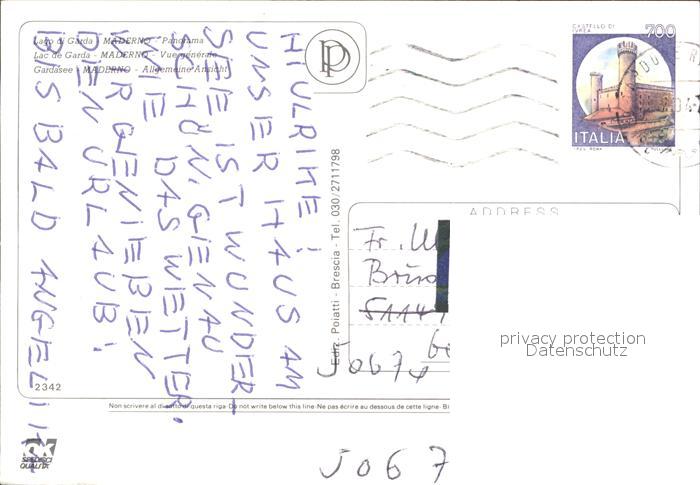 Lago di Garda - MADERNO - Panorama
Lac de Garda - MADERNO - Vue générale
Gardasee - MADERNO - Allgemeine Ansicht
HI ULRIKE!
UNSER HAUS AM
SEE IST WUNDER-
SCHÖN, GENAU
WIE DAS WETTER.
WIR GENIEßEN
DEN URLAUB!
BIS BALD ANGELI
2342
SK
SPEDISCI
QUALITÀ
Ediz. Poiatti - Brescia - Tel. 030/2711798
CASTELLO DI
IVREA
700
ITALIA
ADDRESS
Fr.
J067
J067
Non scrivere al di sotto di questa riga - Do not write below this line - Ne pas écrire au dessous de cette ligne - Bi
privacy protection
Datenschutz